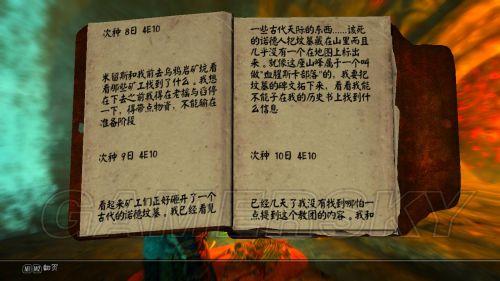 次种 8日 4E10
米留斯和我前去乌鸦岩矿坑看
看那些矿工找到了什么。我想
在下去之前我得在老摇与
一下，得带点物资，不能输在
准备阶段
次种 9日 4E10
看起来矿工们正好砸开了一个
古代的诺德坟墓。我已经看见
一些古代天际的东西……该死
的诺德人把坟墓藏在山里而且
几乎没有一个在地图上标出
来。就像这座山峰属于一个叫
做“血腥斯卡部落”的。我要把
坟墓的碑文拓下来，看看我能
不能子在我的历史书上找到什
么信息
次种 10日 4E10
已经几天了我没有找到哪怕一
点提到这个教团的内容。我和
GAMERSKY
M1 M2 翻页